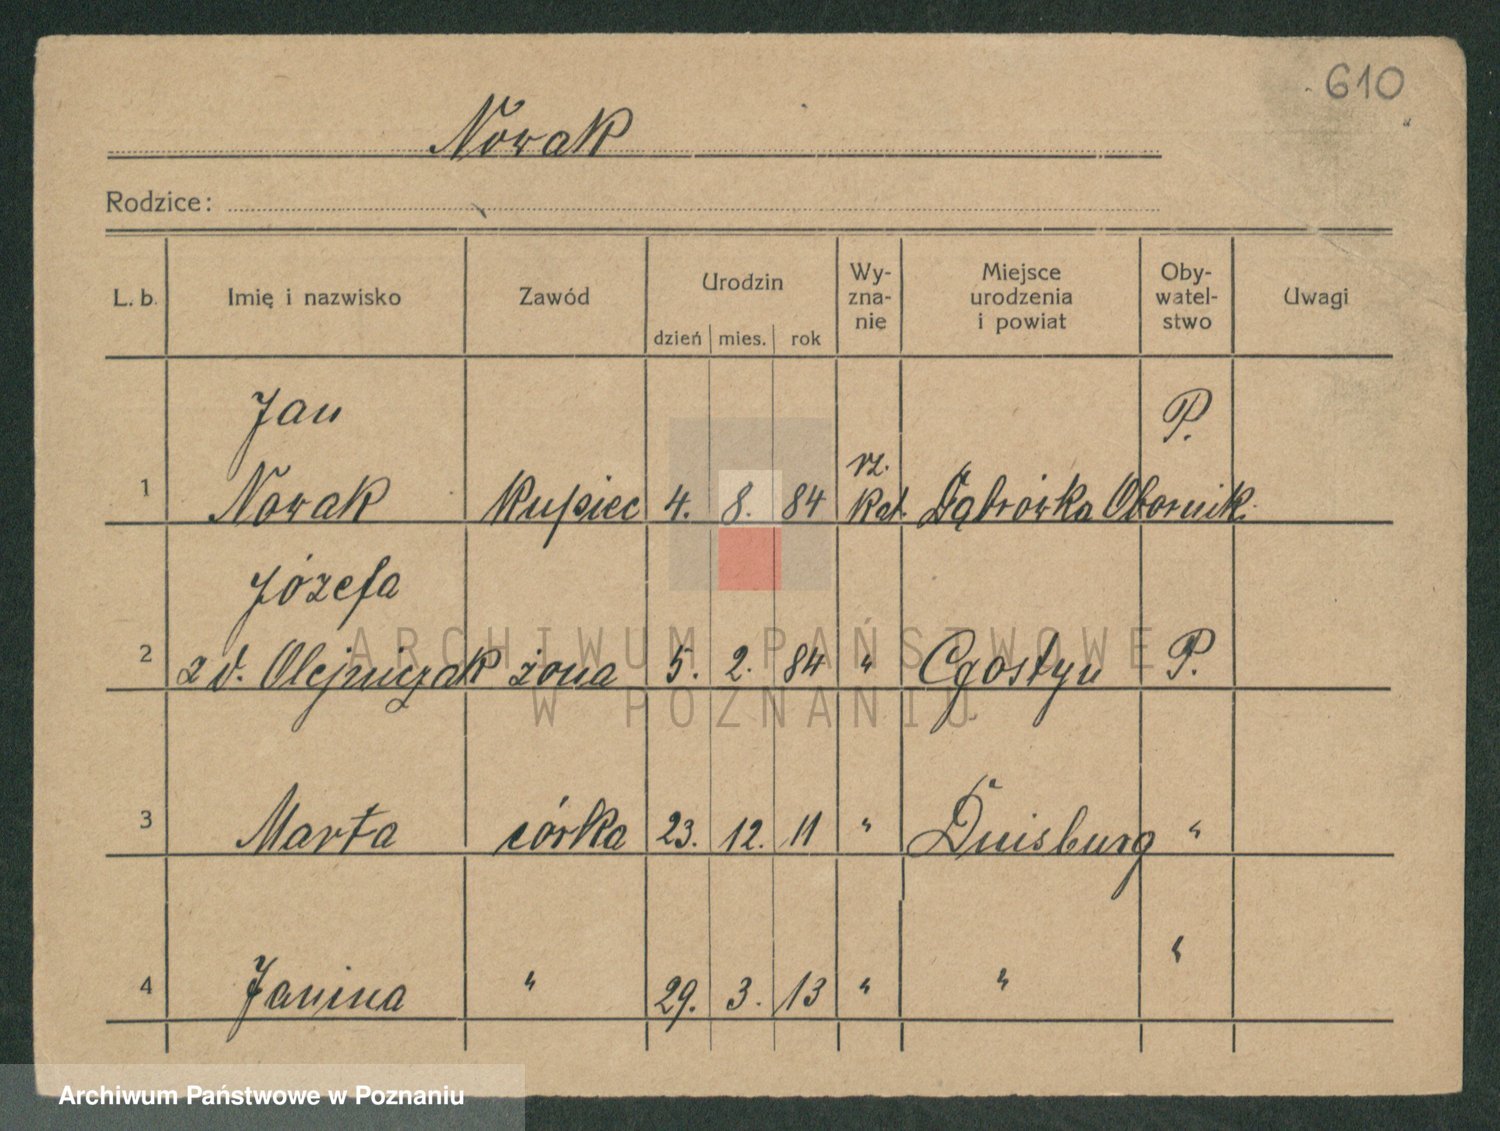 610
Nowak
Rodzice:
L. b. Imię i nazwisko Zawód Urodzin dzień mies. rok Wy-zna-nie Miejsce urodzenia i powiat Oby-watel-stwo Uwagi
Jan P.
rz.
1 Nowak kupiec 4. 8. 84 kat. Dąbrówka Obornik.
Józefa
2 z d. Olejniczak żona 5. 2. 84 " Cgostyn P.
3 Marta córka 23. 12. 11 " Duisburg "
4 Janina " 29. 3. 13 " " "
ARCHIWUM PAŃSTWOWE
W POZNANIU
Archiwum Państwowe w Poznaniu